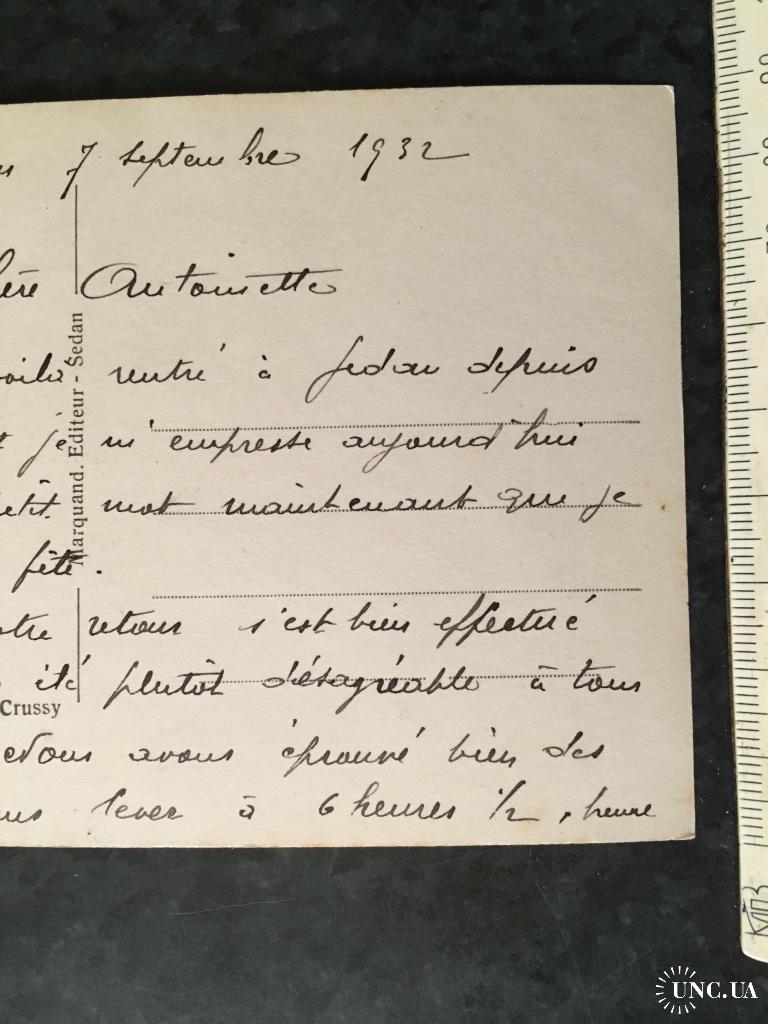 7 septembre 1932
Antoinette
voilà rentré à Sedan depuis
je m'empresse aujourd'hui
petit mot maintenant que je
fêté.
notre retour s'est bien effectué
été plutôt désagréable à tous
Nous avons éprouvé bien des
lever à 6 heures 1/2, heure
Marquand. Editeur - Sedan
Crussy
UNC.UA